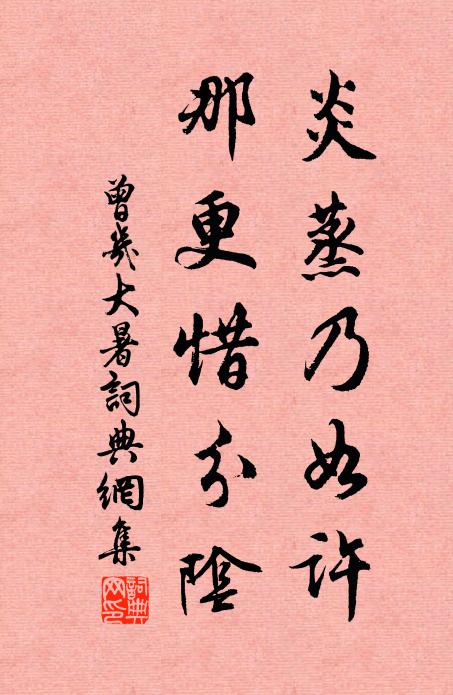 炎蒸乃如許
那更惜分陰
曾幾大暑詞典網集
詞典網印